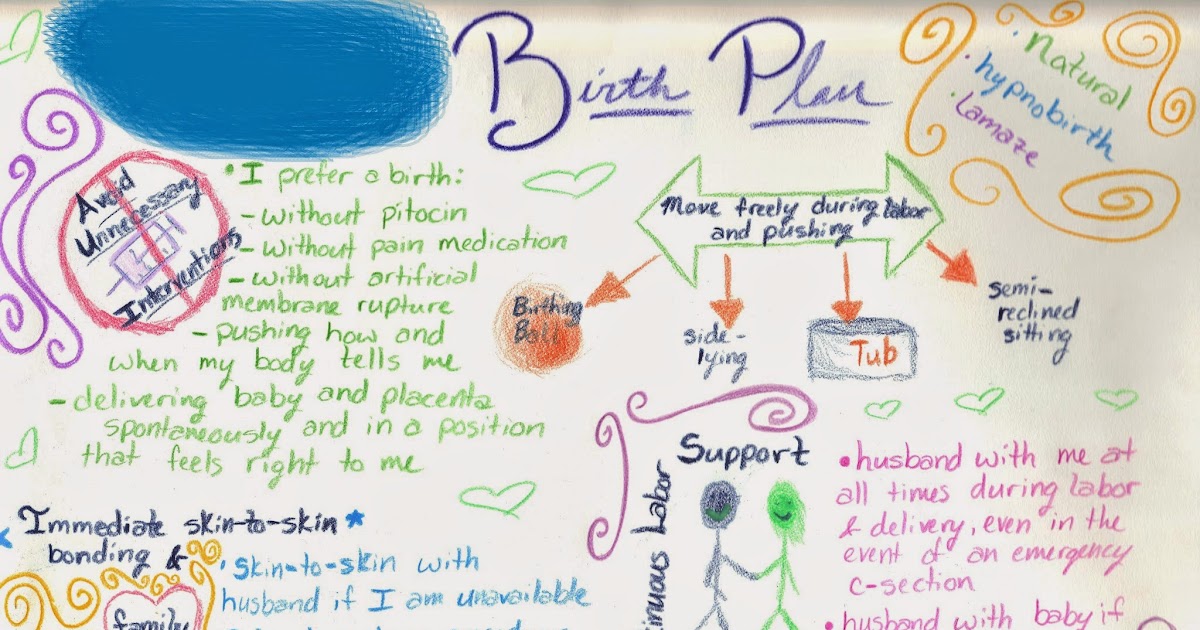 Birth Plan
• Natural
• hypnobirth
• Lamaze
Avoid
Unnecessary
Interventions
• I prefer a birth:
- without pitocin
- without pain medication
- without artificial
membrane rupture
- pushing how and
when my body tells me
- delivering baby and placenta
spontaneously and in a position
that feels right to me
Move freely during labor
and pushing
Birthing
Ball
side-
lying
Tub
semi-
reclined
sitting
Immediate skin-to-skin
bonding &
family
• skin-to-skin with
husband if I am unavailable
Labor
Support
• husband with me at
all times during labor
& delivery, even in the
event of an emergency
c-section
• husband with baby if